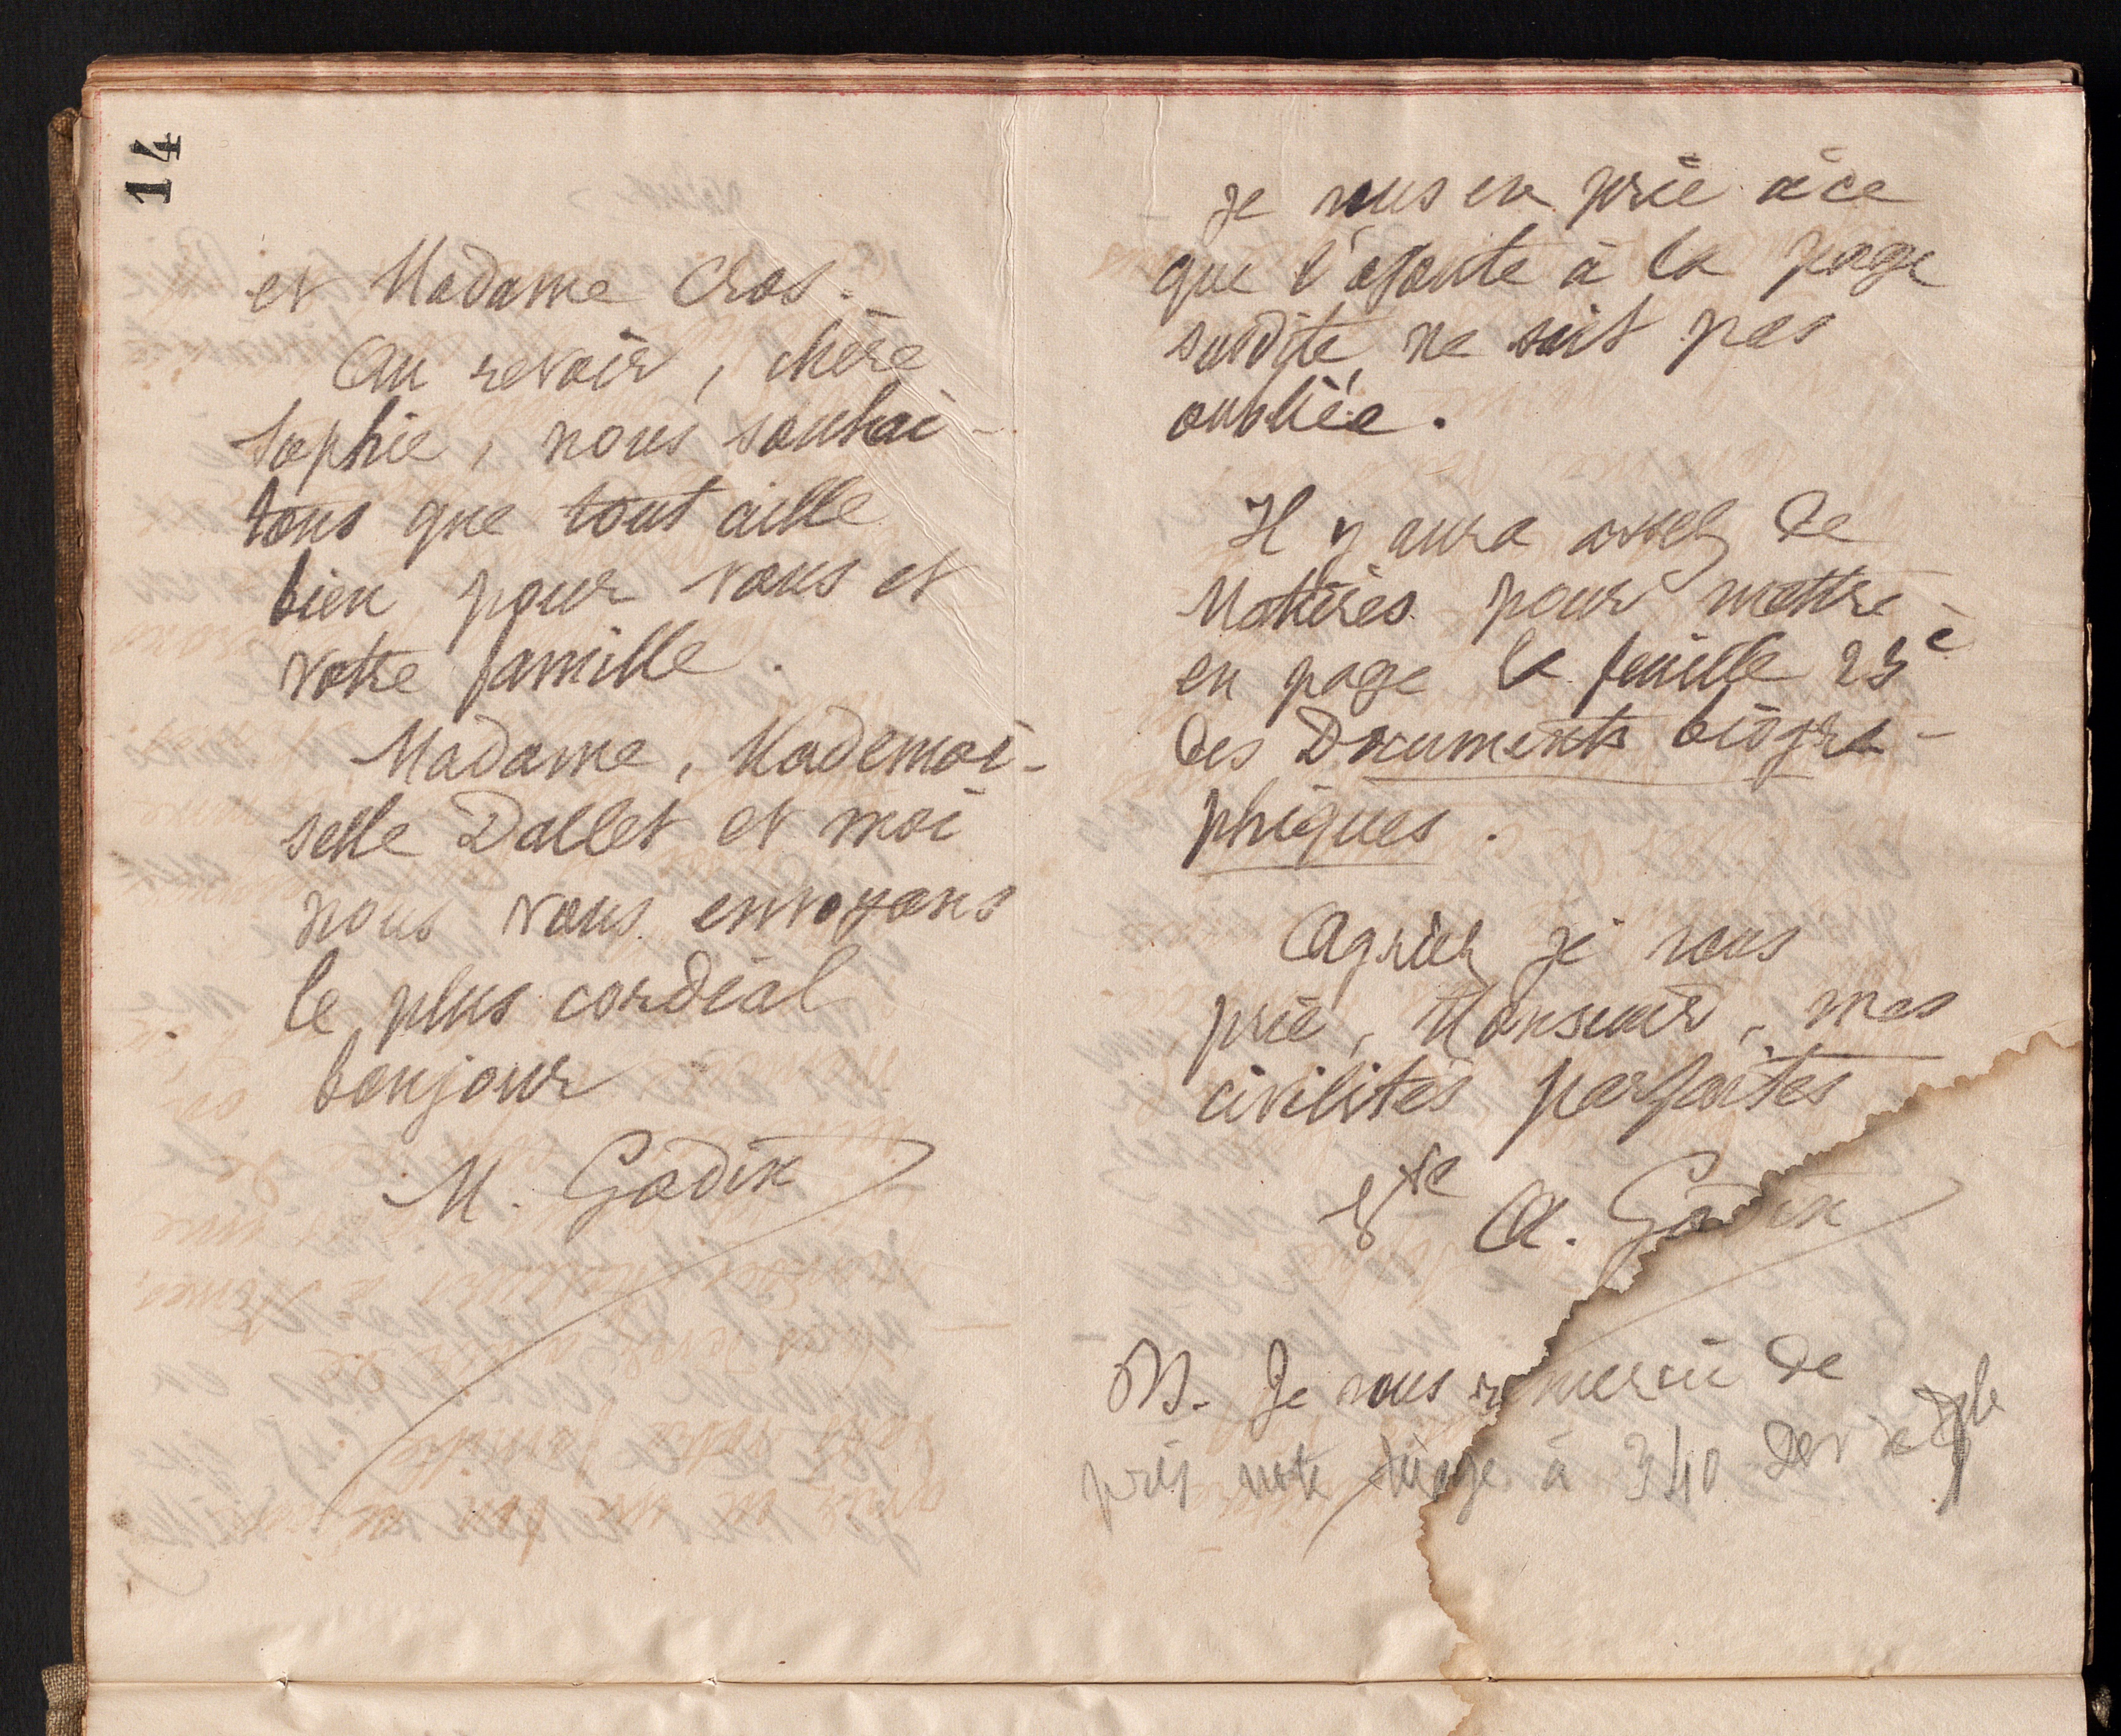 14
et Madame Cros.
Au revoir, chère
Sophie, nous souhai-
tons que tout aille
bien pour vous et
votre famille.
Madame, Mademoi-
selle Dallet et moi
nous vous envoyons
le plus cordial
bonjour
M. Godin
je vous en prie à ce
que l'ajoute à la page
susdite, ne soit pas
oubliée.
Il y aura assez de
Matières pour mettre
en page la feuille 23e
des Documents biogra-
phiques.
Agréez je vous
prie, Monsieur, mes
civilités parfaites
Vve A. Godin
NB. Je vous remercie de
pris note tirage à 340